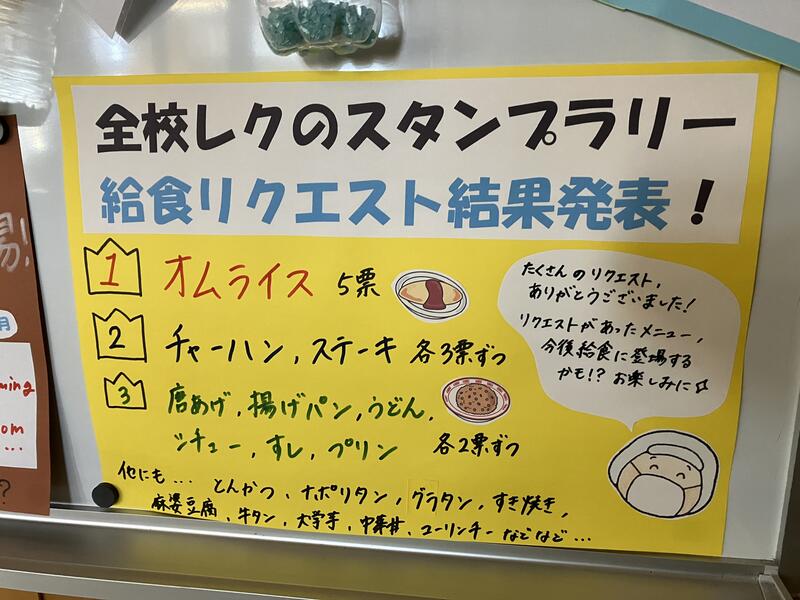 全校レクのスタンプラリー
給食リクエスト結果発表！
1 オムライス 5票
2 チャーハン、ステーキ 各3票ずつ
3 唐あげ、揚げパン、うどん、
シチュー、すし、プリン 各2票ずつ
他にも… とんかつ、ナポリタン、グラタン、すき焼き、
麻婆豆腐、牛タン、大学芋、中華丼、ユーリンチーなどなど…
たくさんのリクエスト、
ありがとうございました！
リクエストがあったメニュー、
今後給食に登場する
かも!? お楽しみに☆
月
ming
om
...
?